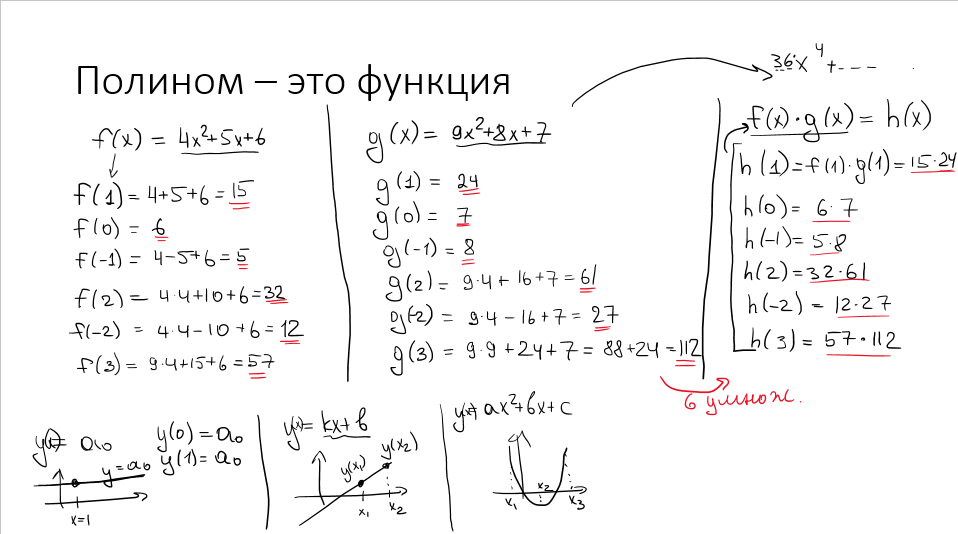 Полином – это функция
36x⁴+---
f(x) = 4x²+5x+6
f(1) = 4+5+6 = 15
f(0) = 6
f(-1) = 4-5+6 = 5
f(2) = 4·4+10+6=32
f(-2) = 4·4-10+6=12
f(3) = 9·4+15+6=57
g(x) = 9x²+8x+7
g(1) = 24
g(0) = 7
g(-1) = 8
g(2) = 9·4+16+7=61
g(-2) = 9·4-16+7=27
g(3) = 9·9+24+7=88+24=112
f(x)·g(x) = h(x)
h(1)=f(1)·g(1)=15·24
h(0)= 6·7
h(-1)= 5·8
h(2)=32·61
h(-2) = 12·27
h(3) = 57·112
6 умнож.
y(x)= a₀
y(0)=a₀
y(1)=a₀
y=a₀
x=1
y(x)= kx+b
y(x₁)
y(x₂)
x₁
x₂
y(x)= ax²+bx+c
x₁
x₂
x₃